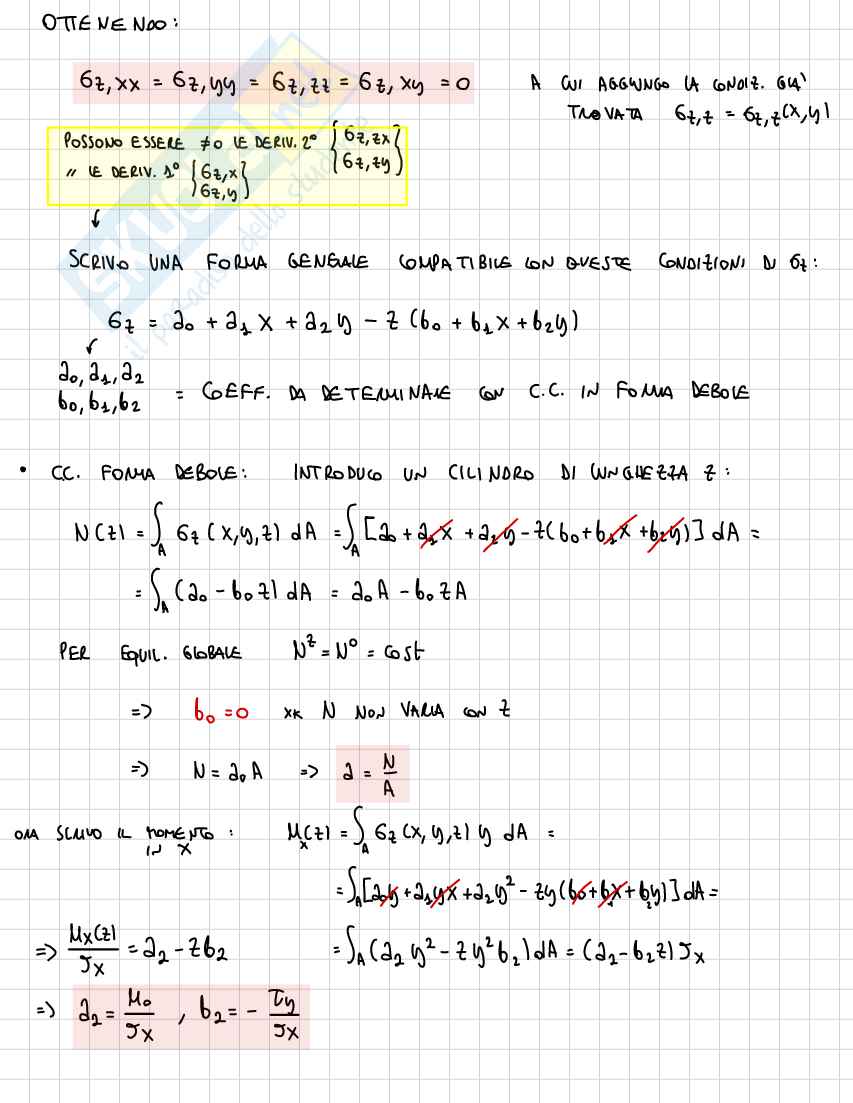 OTTENENDO:
σz,xx = σz,yy = σz,zz = σz,xy = 0
A CUI AGGIUNGO LA CONDIZ. GIA'
TROVATA σz,z = σz,z(x,y)
POSSONO ESSERE ≠0 LE DERIV. 2° {σz,zx
σz,zy}
" LE DERIV. 1° {σz,x
σz,y}
↓
SCRIVO UNA FORMA GENERALE COMPATIBILE CON QUESTE CONDIZIONI DI σz:
σz = a₀ + a₁x + a₂y - z (b₀ + b₁x + b₂y)
a₀, a₁, a₂
b₀, b₁, b₂ = COEFF. DA DETERMINARE CON C.C. IN FORMA DEBOLE
• C.C. FORMA DEBOLE: INTRODUCO UN CILINDRO DI LUNGHEZZA z:
N(z) = ∫_A σz (x,y,z) dA = ∫_A [a₀ + a₁x + a₂y - z(b₀ + b₁x + b₂y)] dA =
= ∫_A (a₀ - b₀z) dA = a₀A - b₀zA
PER EQUIL. GLOBALE N^z = N^0 = cost
=> b₀ = 0 xk N NON VARIA CON z
=> N = a₀A => a = N/A
ORA SCRIVO IL MOMENTO : Mx(z) = ∫_A σz (x,y,z) y dA =
IN X
= ∫_A [a₀y + a₁yx + a₂y² - zy(b₀ + b₁x + b₂y)] dA =
=> Mx(z)/Jx = a₂ - zb₂
= ∫_A (a₂y² - zy²b₂) dA = (a₂ - b₂z) Jx
=> a₂ = M₀/Jx , b₂ = - Ty/Jx
SKUOLA.net
il paradiso dello studente